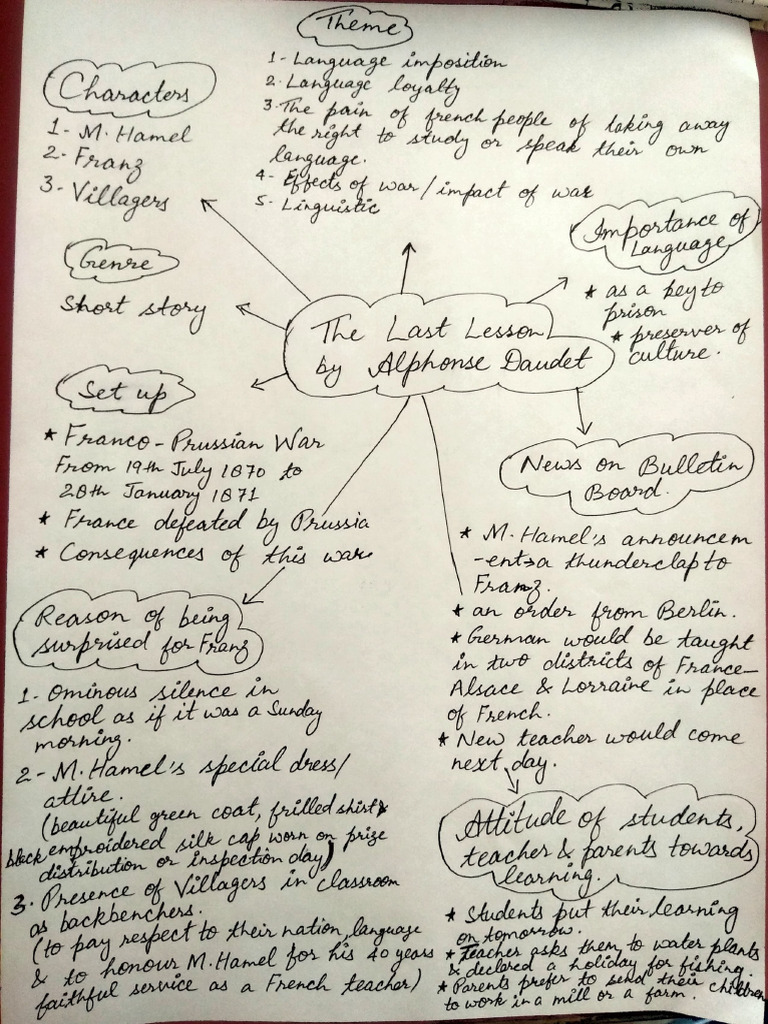 Theme
1- Language imposition
2. Language loyalty
3. The pain of french people of taking away
the right to study or speak their own
language.
4- Effects of war/impact of war
5- Linguistic
Characters
1- M. Hamel
2- Franz
3- Villagers
Genre
Short story
Importance of
Language
* as a key to
prison
* preserver of
culture.
The Last Lesson
by Alphonse Daudet
Set up
* Franco-Prussian War
From 19th July 1870 to
28th January 1871
* France defeated by Prussia
* Consequences of this war
News on Bulletin
Board.
* M. Hamel's announcem
-ent→a thunderclap to
Franz.
* an order from Berlin.
* German would be taught
in two districts of France-
Alsace & Lorraine in place
of French.
* New teacher would come
next day.
Reason of being
surprised for Franz
1- Ominous silence in
school as if it was a Sunday
morning.
2- M. Hamel's special dress/
attire.
(beautiful green coat, frilled shirt,
black embroidered silk cap worn on prize
distribution or inspection day)
3. Presence of Villagers in classroom
as backbenchers.
(to pay respect to their nation, language
& to honour M. Hamel for his 40 years
faithful service as a French teacher)
Attitude of students,
teacher & parents towards
learning.
* Students put their learning
on tomorrow.
* Teacher asks them to water plants
& declared a holiday for fishing.
* Parents prefer to send their children
to work in a mill or a farm.